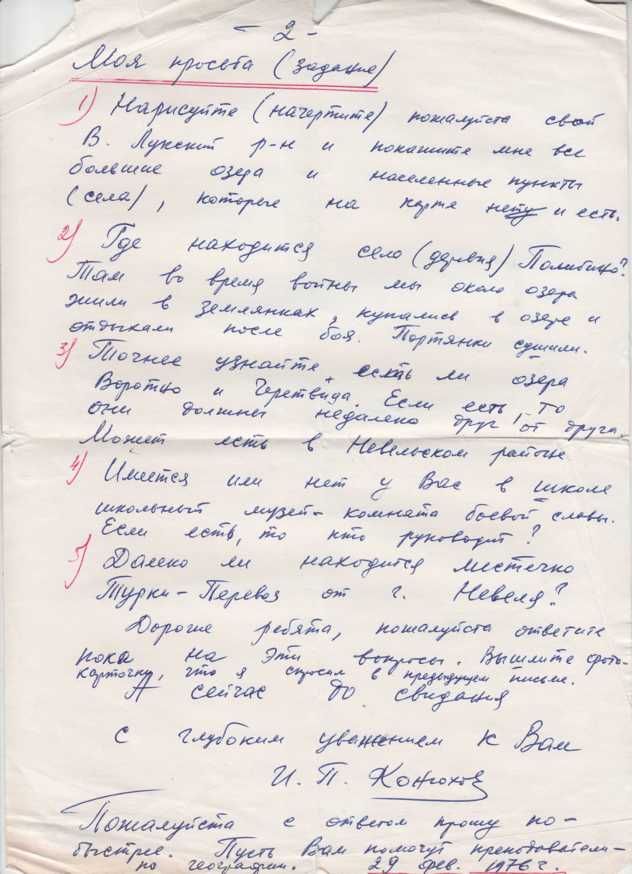 - 2 -
Моя просьба (задание)
1) Нарисуйте (начертите) пожалуйста свой
В. Лукский р-н и покажите мне все
большие озера и населенные пункты
(села), которые на карте нету и есть.
2) Где находится село (деревня) Полибино?
Там во время войны мы около озера
жили в землянках, купались в озере и
отдыхали после боя. Портянки сушили.
3) Точнее узнайте, есть ли озера
Воротно и Черетвида. Если есть, то
они должны недалеко друг от друга.
Может есть в Невельском районе
4) Имеется или нет у Вас в школе
школьный музей-комната боевой славы.
Если есть, то кто руководит?
5) Далеко ли находится местечко
Турки-Перевоз от г. Невеля?
Дорогие ребята, пожалуйста ответьте
пока на эти вопросы. Вышлите фото-
карточку, что я спросил в предыдущем письме.
А сейчас до свидания
С глубоким уважением к Вам
И. П. Конюхов
Пожалуйста с ответом прошу по-
быстрее. Пусть Вам помогут преподаватели-
по географии. 29 фев. 1976 г.